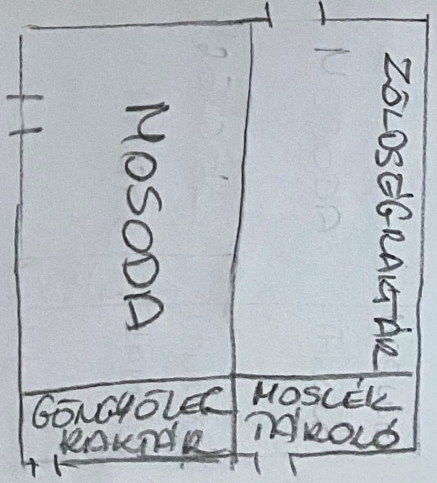 MOSODA
ZÖLDSÉGRAKTÁR
GÖNGYÖLEG
RAKTÁR
MOSLÉK
TÁROLÓ